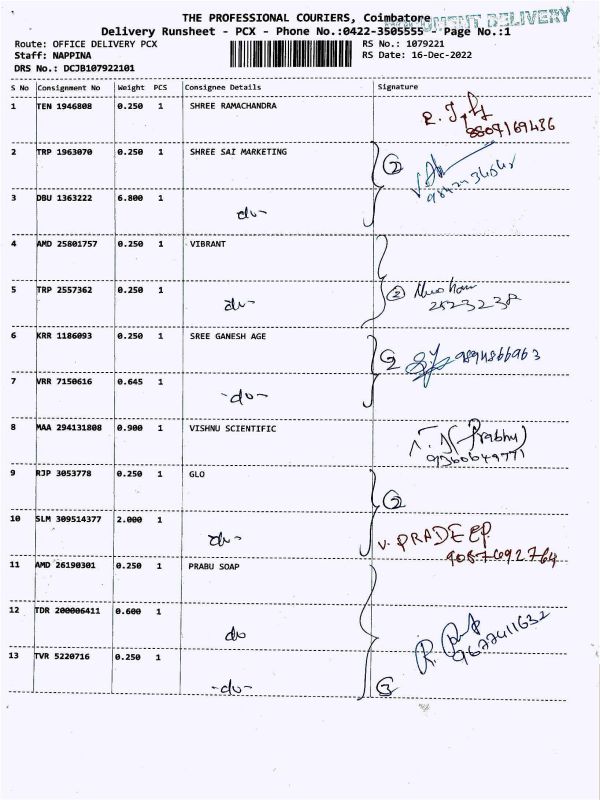 THE PROFESSIONAL COURIERS, Coimbatore
DELIVERY
Delivery Runsheet - PCX - Phone No.:0422-3505555 - Page No.:1
Route: OFFICE DELIVERY PCX
RS No.: 1079221
Staff: NAPPINA
RS Date: 16-Dec-2022
DRS No.: DCJB107922101
S No Consignment No Weight PCS Consignee Details Signature
1 TEN 1946808 0.250 1 SHREE RAMACHANDRA
8807169436
2 TRP 1963070 0.250 1 SHREE SAI MARKETING
2
3 DBU 1363222 6.800 1 -do-
4 AMD 25801757 0.250 1 VIBRANT
5 TRP 2557362 0.250 1 -do-
2
2523238
6 KRR 1186093 0.250 1 SREE GANESH AGE
2 9894866963
7 VRR 7150616 0.645 1 -do-
8 MAA 294131808 0.900 1 VISHNU SCIENTIFIC
(Prabhu)
9360649771
9 RJP 3053778 0.250 1 GLO
2
10 SLM 309514377 2.000 1 -do-
V. PRADEEP
9087692764
11 AMD 26190301 0.250 1 PRABU SOAP
12 TDR 200006411 0.600 1 do
9677411632
13 TVR 5220716 0.250 1 -do-
3